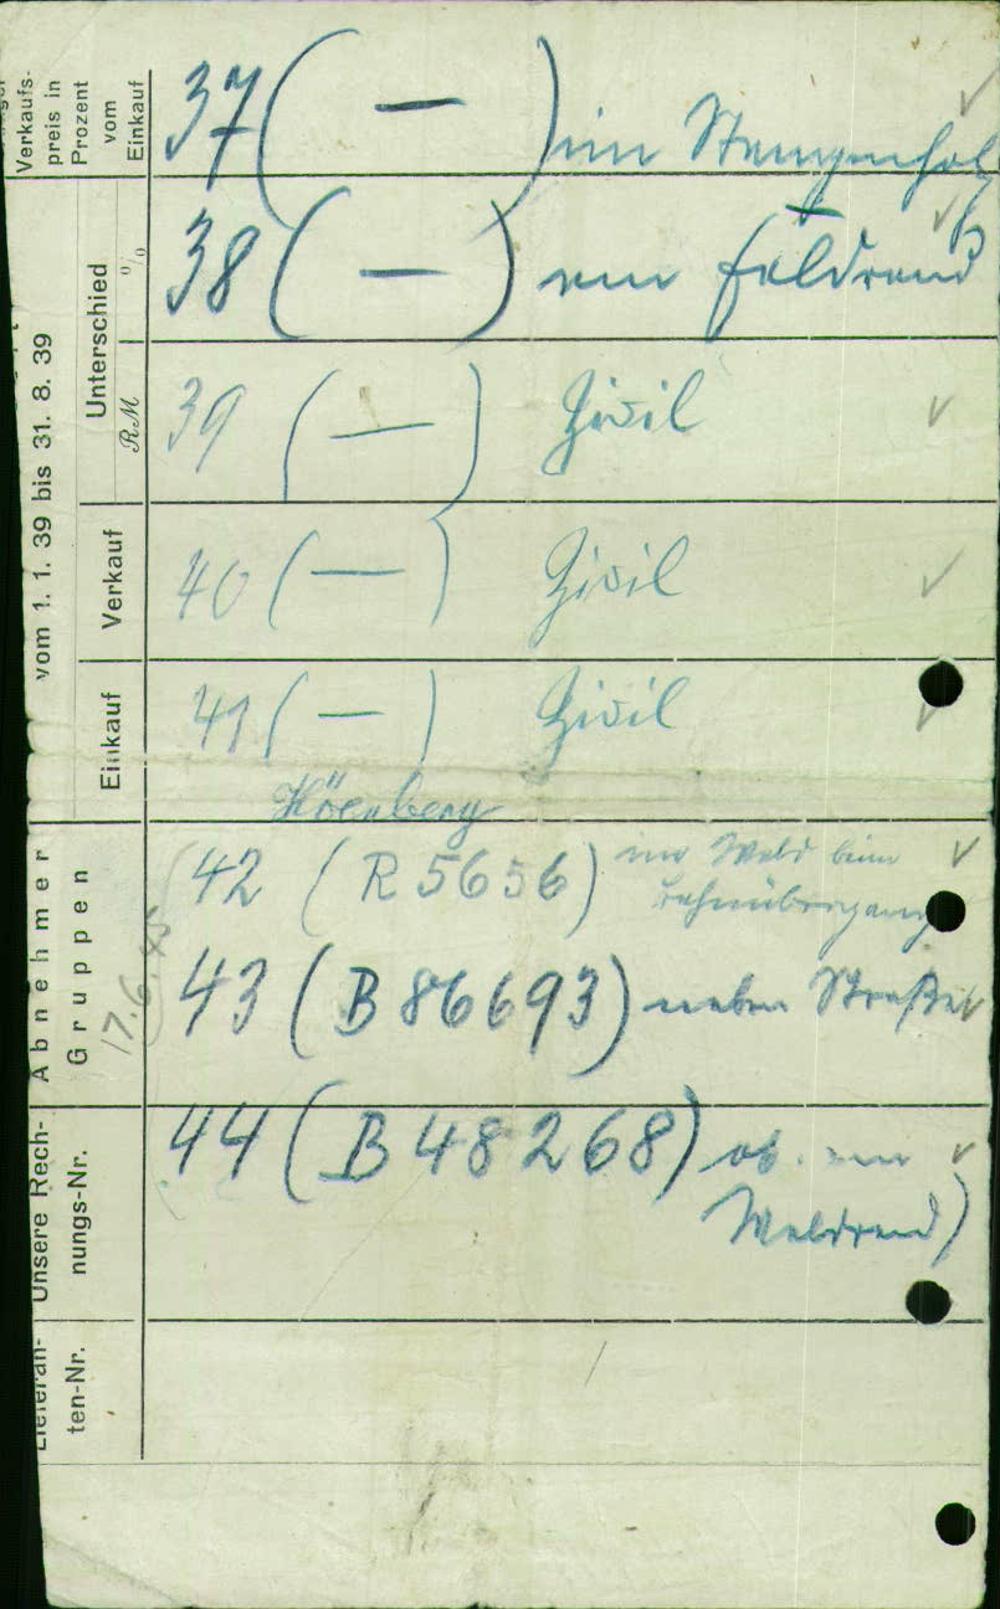 37 ( — ) im Stangenholz ✓
38 ( — ) am Feldrand ✓
39 ( — ) Zivil ✓
40 ( — ) Zivil ✓
41 ( — ) Zivil ✓
42 ( R 5656 ) im Wald beim ✓
bahnübergang
43 ( B 86693 ) neben Straße ✓
44 ( B 48268 ) ob. am ✓
Waldrand )
Verkaufs-
preis in
Prozent
vom
Einkauf
vom 1. 1. 39 bis 31. 8. 39
Unterschied
%
RM
Verkauf
Einkauf
Abnehmer
Gruppen
17. 6. 45
Unsere Rech-
nungs-Nr.
Lieferan-
ten-Nr.